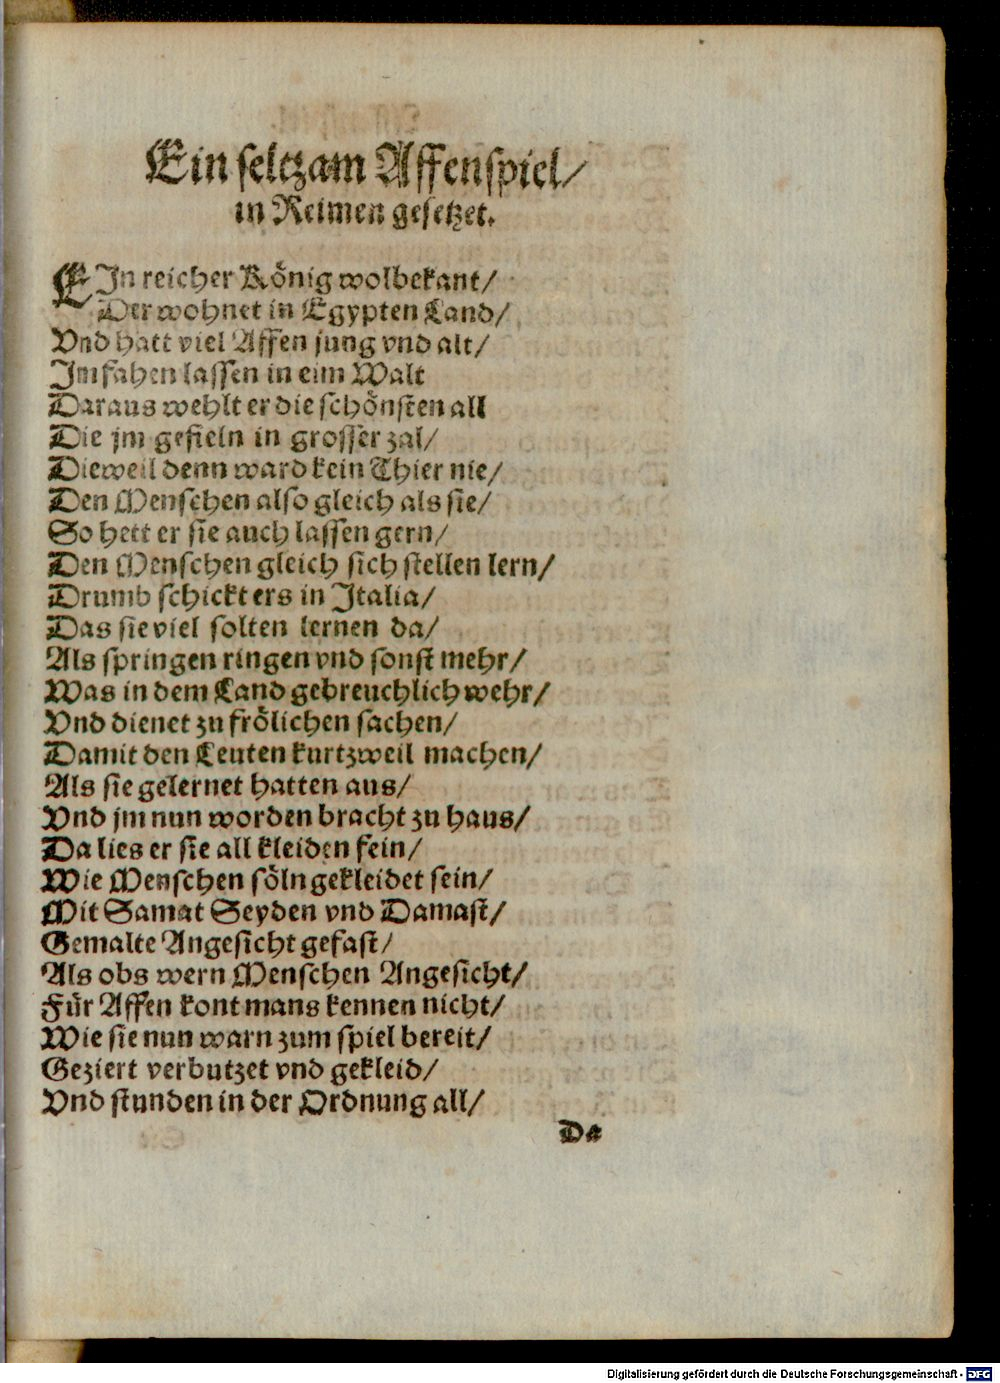 Ein seltzam Affenspiel/
in Reimen gesetzet.
EIn reicher König wolbekant/
Der wohnet in Egypten Land/
Vnd hatt viel Affen jung vnd alt/
Im fahen lassen in eim Walt
Daraus wehlt er die schönsten all
Die jm gefieln in grosser zal/
Dieweil denn ward kein Thier nie/
Den Menschen also gleich als sie/
So hett er sie auch lassen gern/
Den Menschen gleich sich stellen lern/
Drumb schickt ers in Italia/
Das sie viel solten lernen da/
Als springen ringen vnd sonst mehr/
Was in dem Land gebreuchlich wehr/
Vnd dienet zu frölichen sachen/
Damit den Leuten kurtzweil machen/
Als sie gelernet hatten aus/
Vnd jm nun worden bracht zu haus/
Da lies er sie all kleiden fein/
Wie Menschen söln gekleidet sein/
Mit Samat Seyden vnd Damast/
Gemalte Angesicht gefast/
Als obs wern Menschen Angesicht/
Für Affen kont mans kennen nicht/
Wie sie nun warn zum spiel bereit/
Geziert verbutzet vnd gekleid/
Vnd stunden in der Ordnung all/
Da
Digitalisierung gefördert durch die Deutsche Forschungsgemeinschaft - DFG